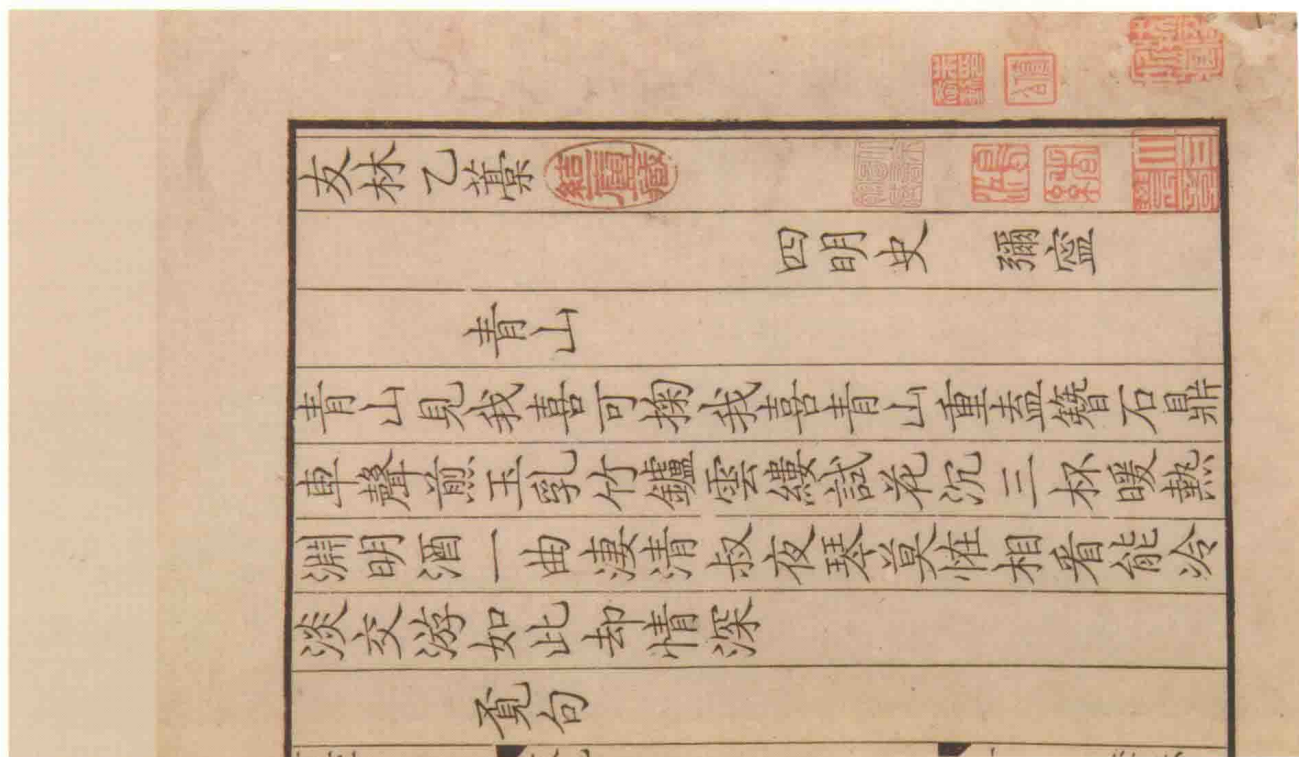 友林乙藁
四明史　彌寍
青山
青山見我喜可掬我喜青山重盍簪石鼎
車聲煎玉乳竹鑪雲縷試花沉三杯暖熱
淵明酒一曲淒清叔夜琴莫恠相看能冷
淡交游如此却情深
覔句